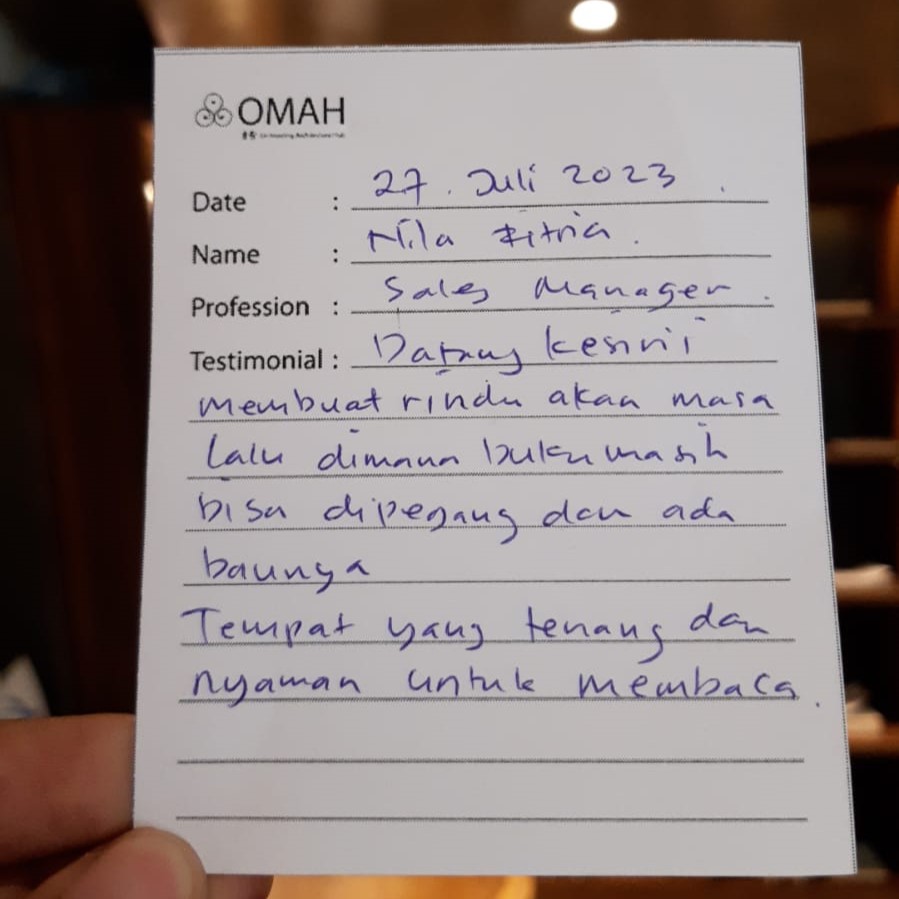 OMAH
Date : 27. Juli 2023.
Name : Nila Fitria.
Profession : Sales Manager.
Testimonial : Datang kesini
membuat rindu akan masa
lalu dimana buku masih
bisa dipegang dan ada
baunya
Tempat yang tenang dan
nyaman untuk membaca.